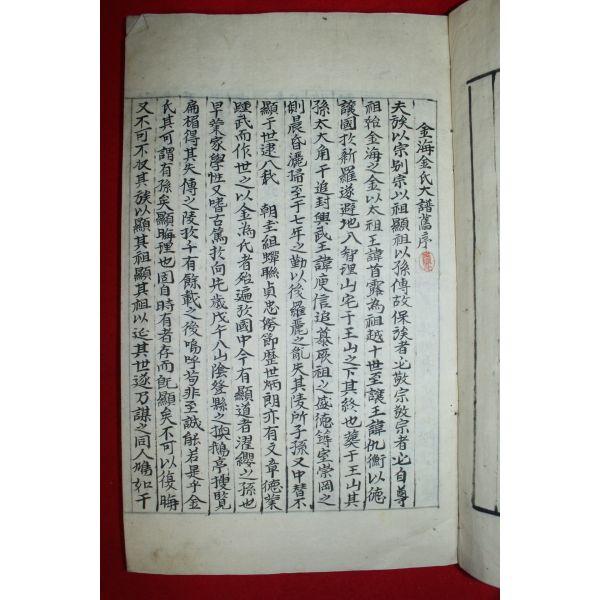 金海金氏大譜舊序
夫族以宗别宗以祖顯祖以孫傳故保族者必敬宗敬宗者必自尊
祖始金海之金以太祖王諱首露為祖越十世至讓王諱仇衡以德
讓國於新羅遂避地入智理山宅于王山之下其終也葬于王山其
孫太大角干追封興武王諱庾信追慕厥祖之盛德築室崇岡之
側晨昏灑掃至于七年之勤以後羅麗之亂失其陵所子孫又中替不
顯于世逮入我 朝圭組蟬聯貞忠節歷世炳朗亦有文章德業
踵武而作世之以金為氏者殆遍於國中今有顯道者濯纓之孫也
早業家學性又嗜古篤於向先歲戊午入山陰登縣之換鵝亭搜覽
扁楣得其失傳之陵於千有餘載之後嗚呼苟非至誠能若是乎金
氏其可謂有孫矣顯晦理也固自時有者存而旣顯矣不可以復晦
又不可不收其族以顯其祖顯其祖以延其世遂乃謀之同人鳩如干